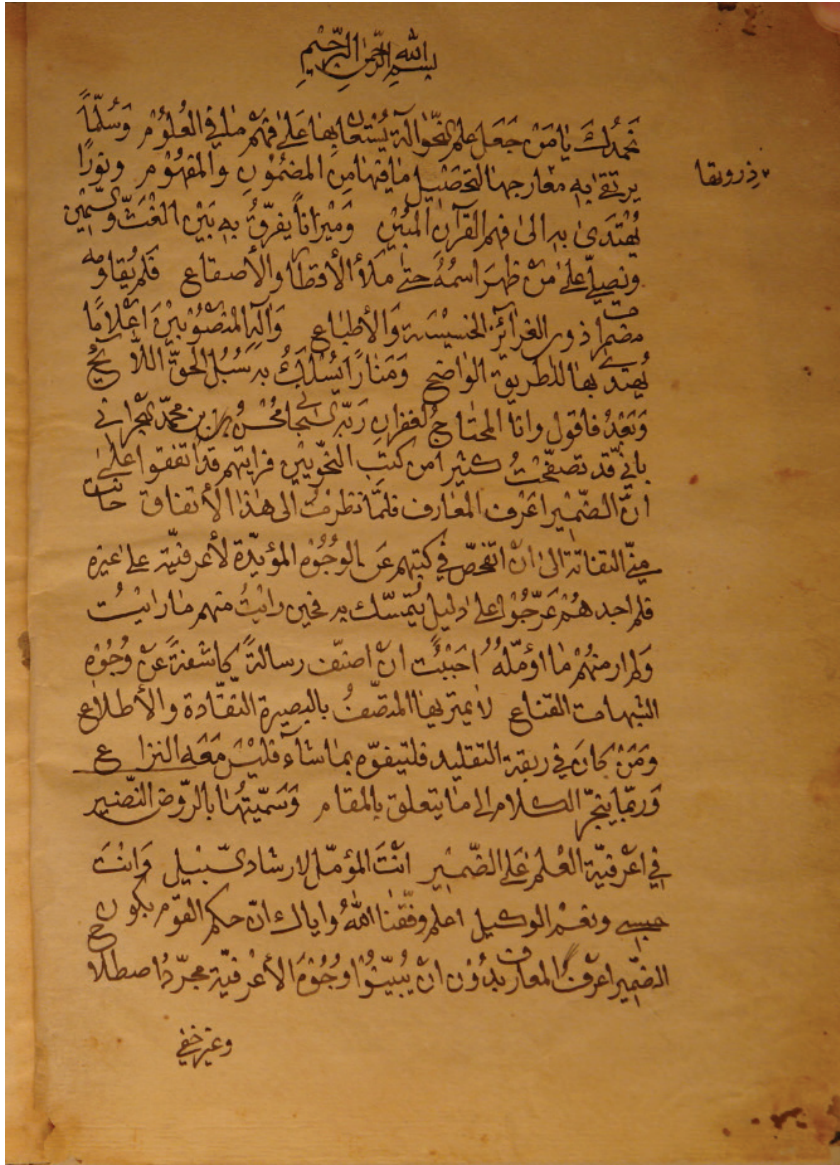 بسم الله الرحمن الرحيم
نحمدك يا من جعل علم النحو آلة يستعان بها على فهم ما في العلوم وسلما
يرتقى به معارجها لتحصيل ما فيها من المضمون والمفهوم ونورا
يهتدى به الى فهم القرآن المبين وميزانا يفرق به بين الغث والسمين
ونصلي على من ظهر اسمه حتى ملأ الأقطار والأصقاع فلم يقاومه
مضمرات ذوو الغرائز الخسيسة والأطباع وآله المنصوبين اعلاما
يهتدى بها للطريق الواضح ومنارا يسلك به سبل الحق اللائح
وبعد فاقول وانا المحتاج لغفران ربه بن محمد البحراني
باني قد تصفحت كثيرا من كتب النحويين فرايتهم قد اتفقوا على
ان الضمير اعرف المعارف فلما نظرت الى هذا الأتفاق حانت
مني التفاتة الى ان اتفحص في كتبهم عن الوجوه المؤيدة لأعرفية على غيره
فلم اجدهم عرجوا على دليل يتمسك به فحين رايت منهم ما رايت
ولم ار منهم ما اؤمله احببت ان اصنف رسالة كاشفة عن وجوه
الشبهات القناع لا يمتر بها المتصف بالبصيرة النقادة والأطلاع
ومن كان في ربقة التقليد فليتفوه بما شاء فليس معه النزاع
وربما ينجر الكلام الى ما يتعلق بالمقام وسميتها بالروض النضير
في اعرفية العلم على الضمير انت المؤمل لارشادي سبيل وانت
حسبي ونعم الوكيل اعلم وفقنا الله واياك ان حكم القوم بكون
الضمير اعرف المعارف بدون ان يبينوا وجوه الأعرفية مجرد اصطلاح
وغير خفي